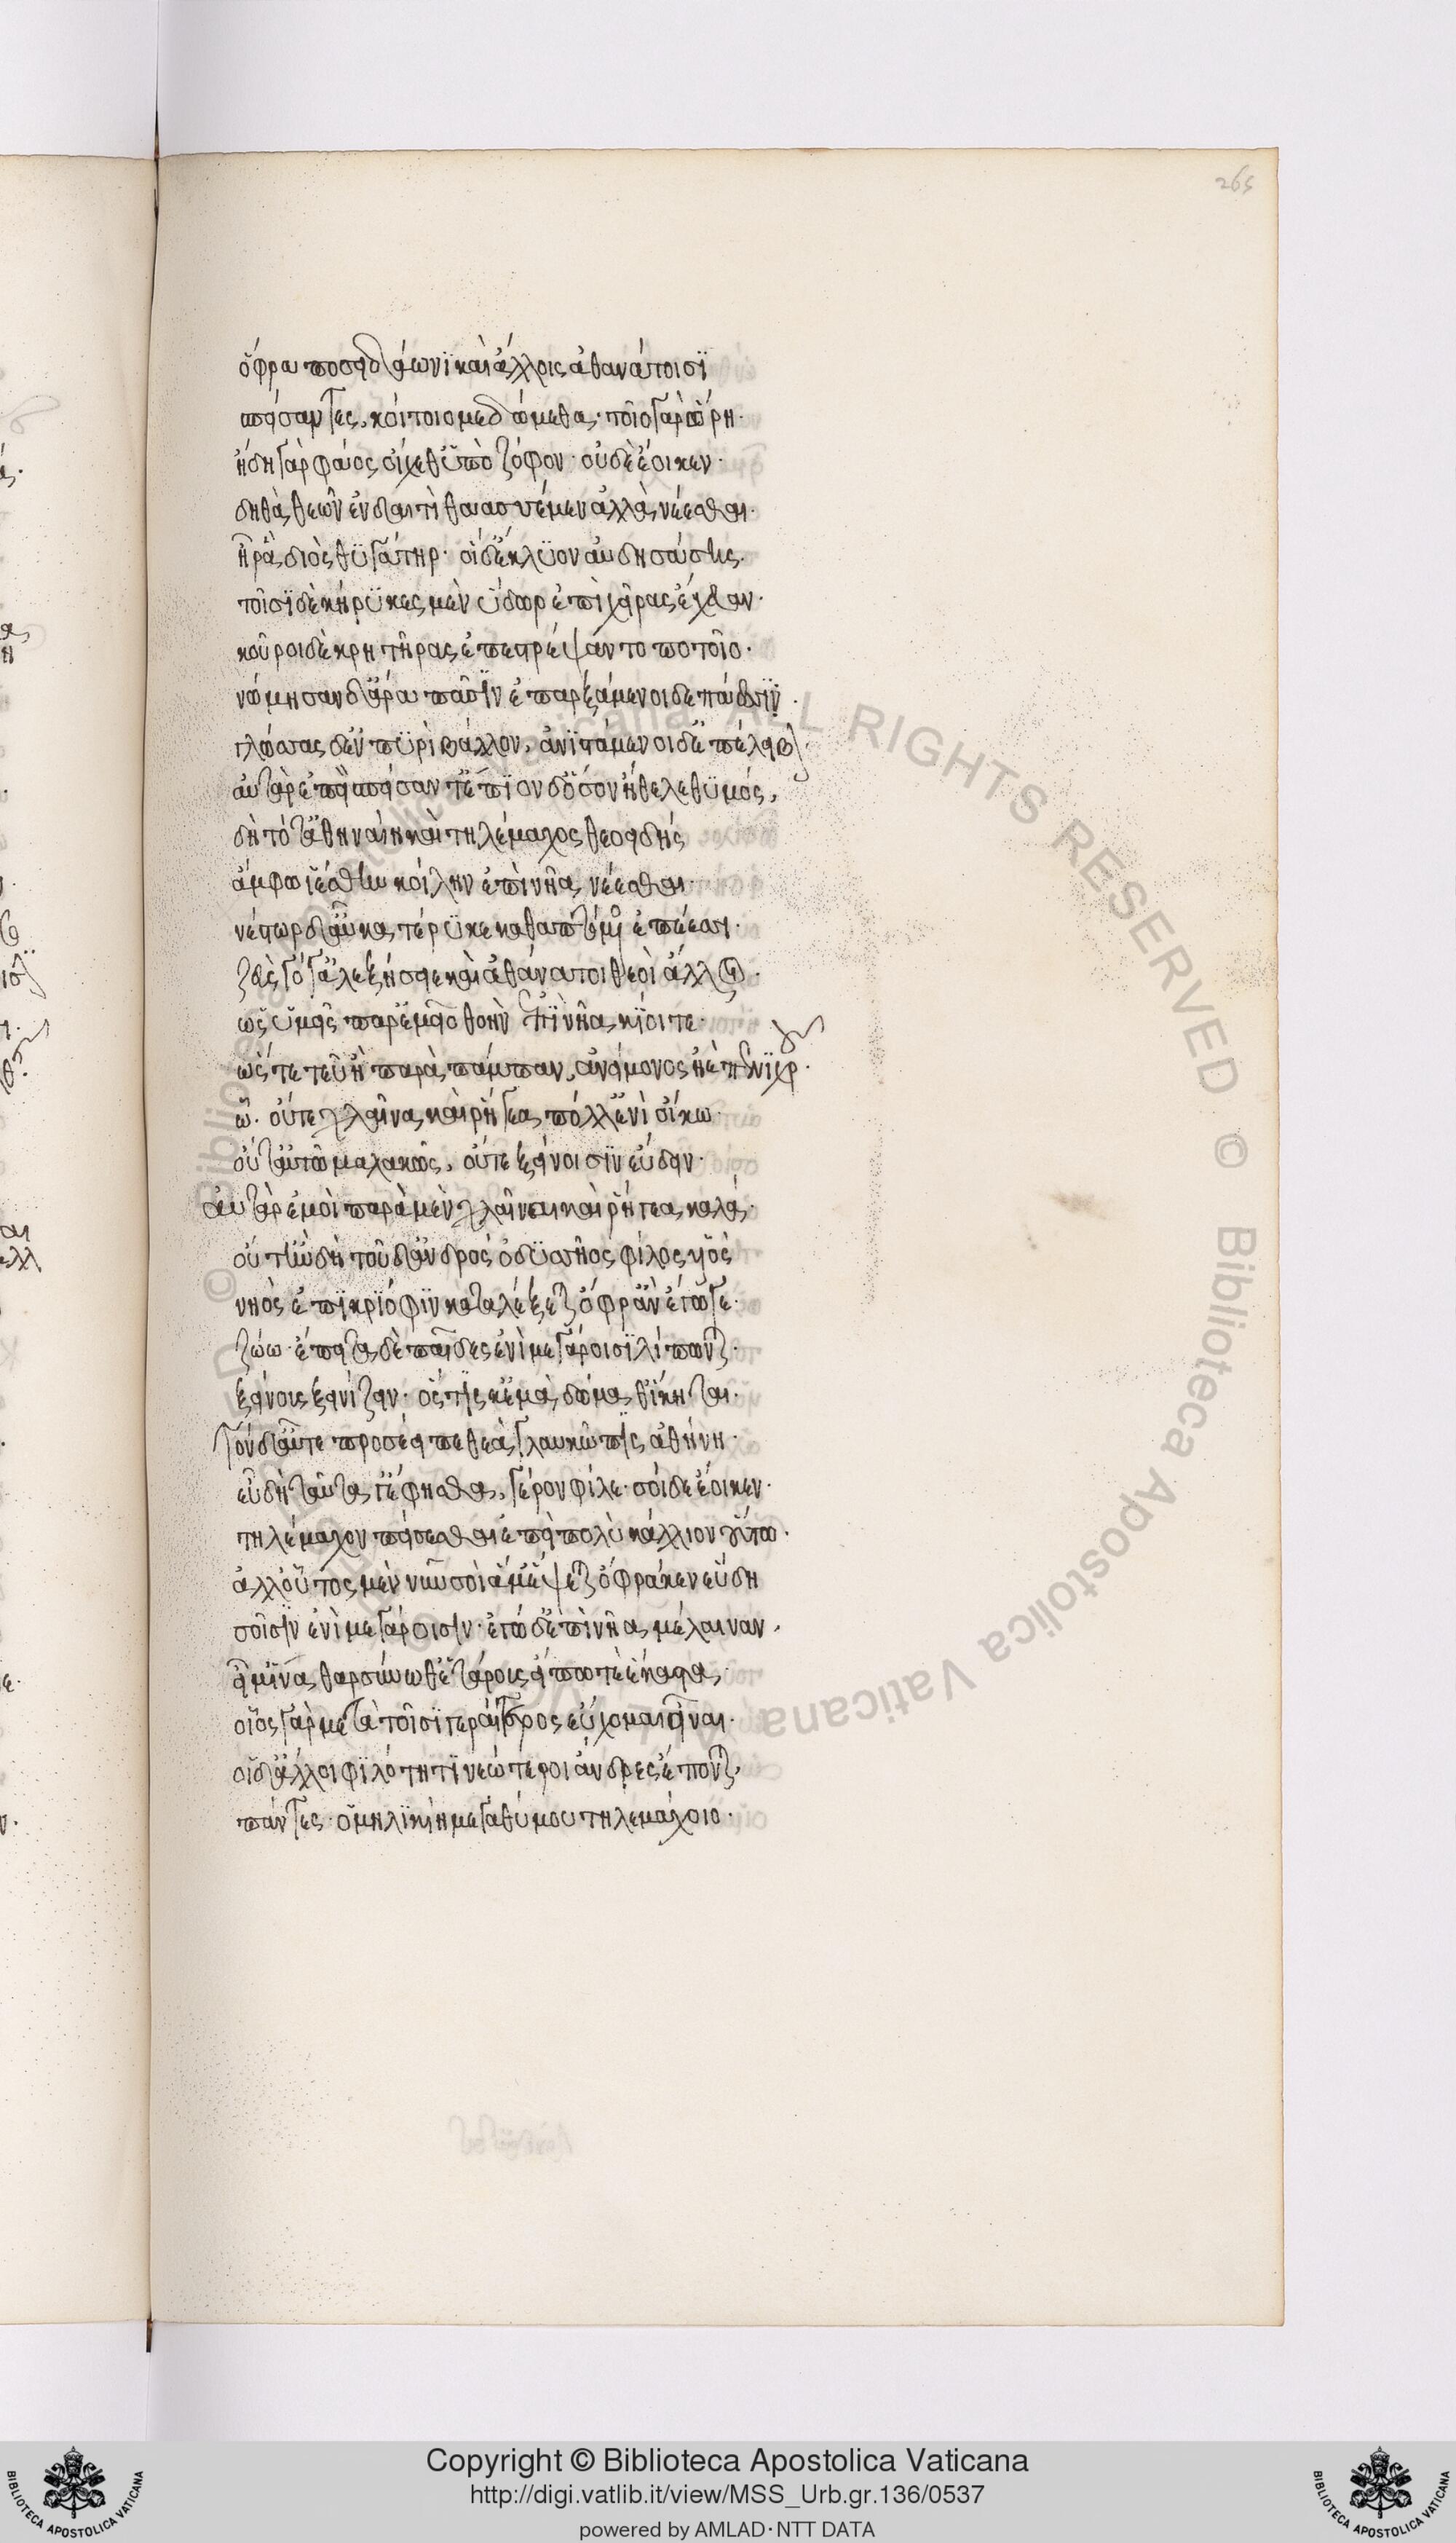 265
ὄφρα ποσειδάωνϊ καὶ ἄλλοις ἀθανάτοισϊ
σπείσαντες, κοίτοιο μεδώμεθα· τοῖο γὰρ ὥρη·
ἤδη γὰρ φάος οἴχεθ ὑπὸ ζόφον· οὐδὲ ἔοικεν·
δηθὰ θεῶν ἐν δαιτὶ θαασσέμεν ἀλλὰ νέεσθαι·
ἦ ῥα διὸς θϋγάτηρ· οἱ δ' ἔκλϋον αὐδησάσης·
τοῖσϊ δὲ κήρϋκες μὲν ὕδωρ ἐπὶ χεῖρας ἔχευαν·
κοῦροι δὲ κρητῆρας ἐπεστρέψάντο ποτοῖο·
νώμησαν δ' ἄρα πᾶσϊν ἐπαρξάμενοι δεπάεσσϊν·
γλώσσας δ' ἐν πϋρὶ βάλλον, ἀνϊστάμενοι δ' ἐπέλειβον·
αὐτὰρ ἐπεὶ σπεῖσάν τ' ἔπϊον δ' ὅσον ἤθελε θϋμός,
δὴ τότ' ἀθηναίη καὶ τηλέμαχος θεοειδής
ἄμφω ἱέσθην κοίλην ἐπὶ νῆα νέεσθαι·
νέστωρ δ' αὖ κατέρϋκε καθαπτόμενος ἐπέεσσι·
ζεὺς τό γ' ἀλεξήσειε καὶ ἀθάνατοι θεοὶ ἄλλοι·
ὡς ὑμεῖς παρ' ἐμεῖο θοὴν ἐπὶ νῆα κϊοιτε·
ὥς τέ τευ ἢ παρὰ πάμπαν, ἀνείμονος ἠὲ πενϊχρ·
ᾧ· οὔτε χλαῖνα καὶ ῥήγεα πόλλ' ἐνὶ οἴκω·
οὔτ' αὐτῶ μαλακῶς, οὔτε ξείνοισϊν εὕδειν·
αὐτὰρ ἐμοὶ πάρα μὲν χλαῖναι καὶ ῥήγεα καλά·
οὔ την δὴ τοῦδ' ἀνδρὸς ὀδϋσσῆος φίλος υἱὸς
νηὸς ἐπ' ϊκρϊόφϊν καταλέξεται ὄφρ' ἂν ἔγωγε·
ζώω· ἔπειτα δὲ παῖδες ἐνὶ μεγάροισϊ λίπωνται·
ξείνους ξεινίζειν· ὅς τϊς κ' ἐμὰ δώμαθ' ϊκηται·
Τὸν δ' αὖτε προσέειπε θεὰ γλαυκῶπϊς ἀθήνη·
εὖ δὴ ταῦτά γ' ἔφησθα, γέρον φίλε· σοὶ δὲ ἔοικεν·
τηλέμαχον πείθεσθαι ἐπεὶ πολὺ κάλλιον οὕτω·
ἀλλ' οὗτος μὲν νῦν σοὶ ἅμ' ἕψεται ὄφρά κεν εὕδη
σοῖσϊν ἐνὶ μεγάροισϊν· ἐγὼ δ' ἐπὶ νῆα μέλαιναν,
εἶμ' ἵνα θαρσύνω θ' ἑτάρους εἴπω τε ἕκαστα,
οἶος γὰρ μετὰ τοῖσϊ γεραίτερος εὔχομαι εἶναι·
οἱ δ' ἄλλοι φϊλότητϊ νεώτεροι ἄνδρες ἕπονται·
πάντες· ὁμηλϊκίη μεγαθύμου τηλεμάχοιο·
Copyright © Biblioteca Apostolica Vaticana
http://digi.vatlib.it/view/MSS_Urb.gr.136/0537
powered by AMLAD·NTT DATA